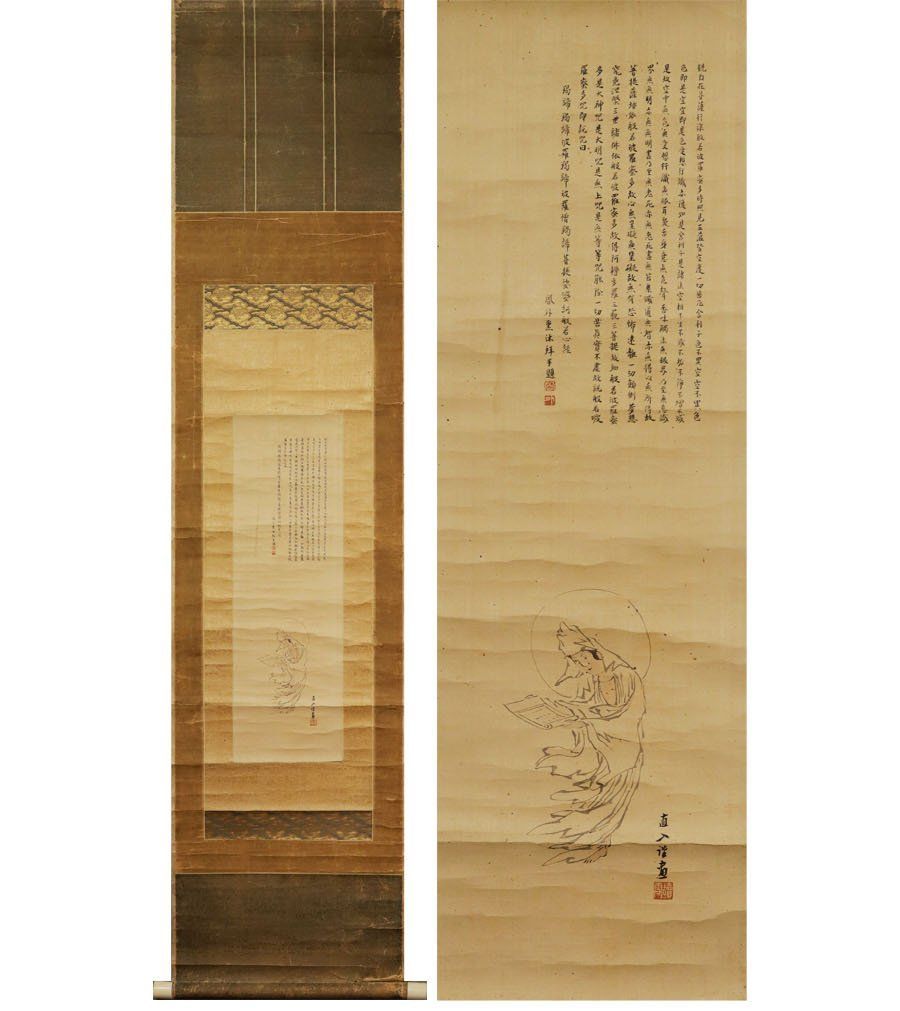 観自在菩薩行深般若波羅密多時照見五蘊皆空度一切苦厄舎利子色不異空空不異色
色即是空空即是色受想行識亦復如是舎利子是諸法空相不生不滅不垢不淨不増不減
是故空中無色無受想行識無眼耳鼻舌身意無色聲香味觸法無眼界乃至無意識
界無無明亦無無明盡乃至無老死亦無老死盡無苦集滅道無智亦無得以無所得故
菩提薩埵依般若波羅密多故心無罣礙無罣礙故無有恐怖遠離一切顛倒夢想
究竟涅槃三世諸佛依般若波羅密多故得阿耨多羅三藐三菩提故知般若波羅密
多是大神咒是大明咒是無上咒是無等等咒能除一切苦真實不虚故説般若波
羅密多咒即説咒曰
羯諦羯諦波羅羯諦波羅僧羯諦菩提娑婆訶般若心経
熏沐拜手題
直入謹畫